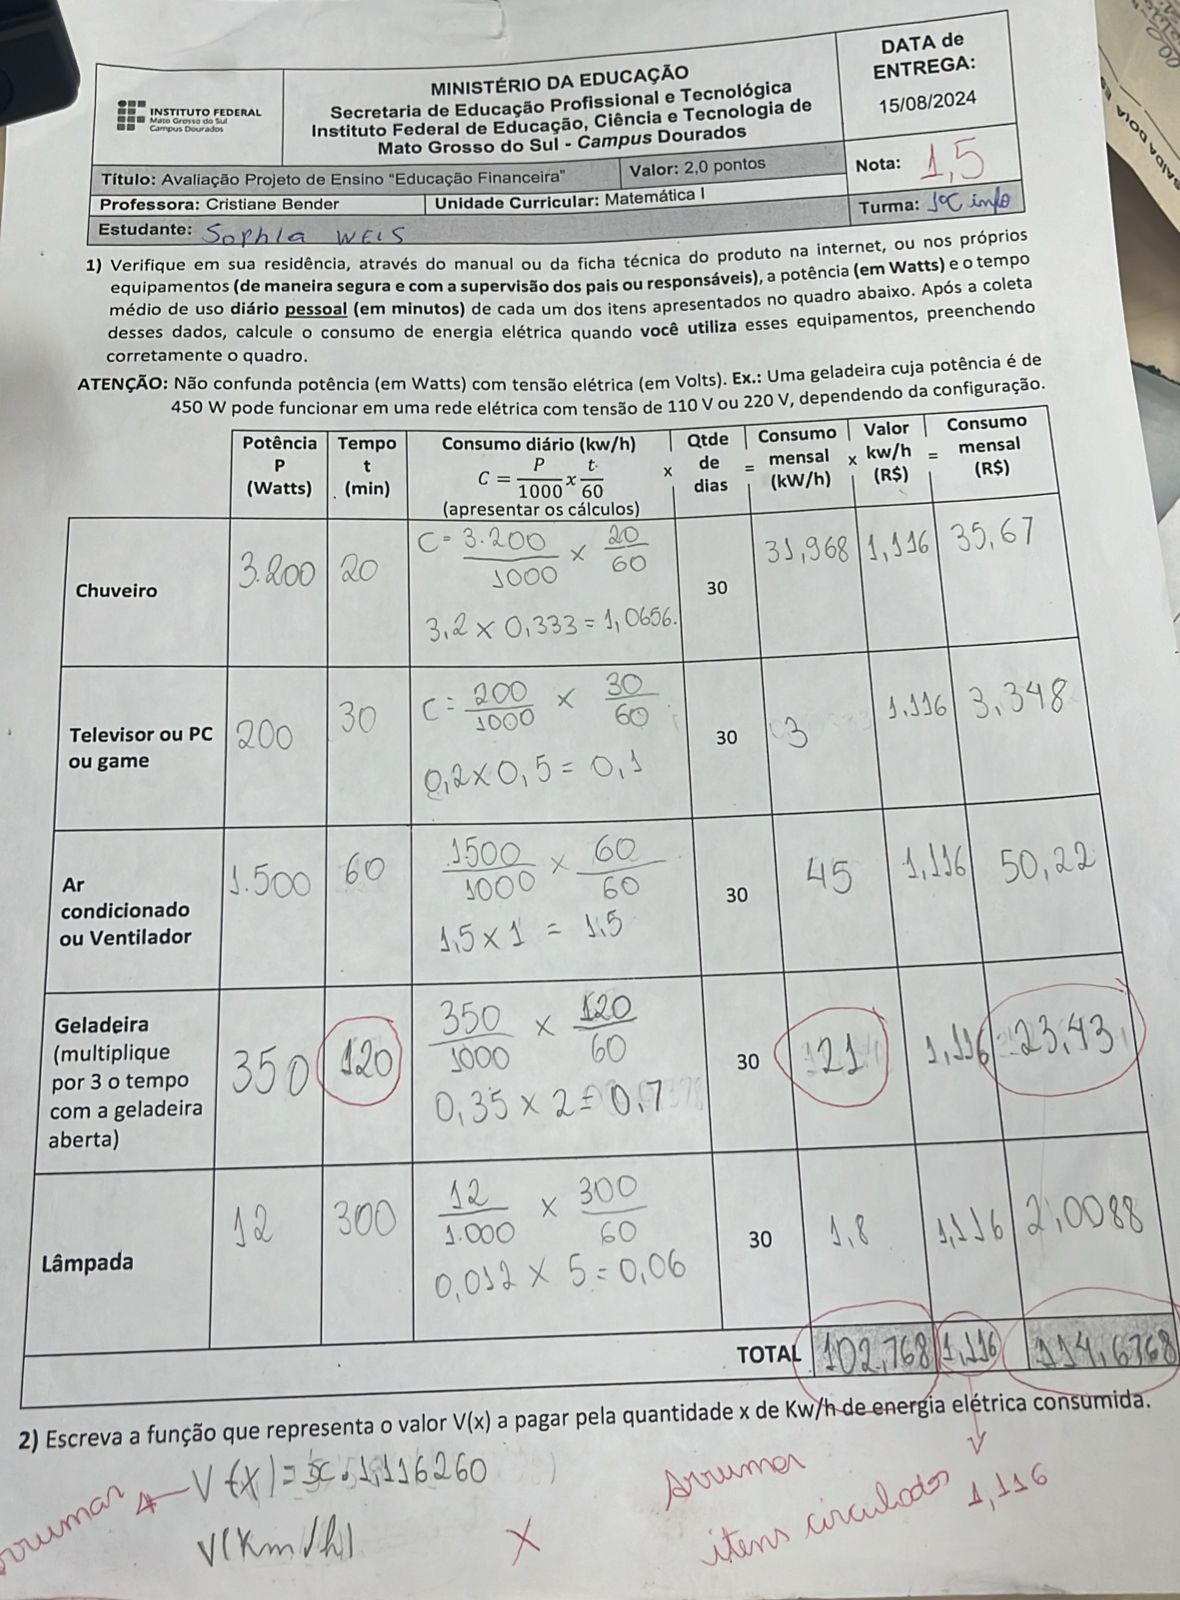 INSTITUTO FEDERAL
Mato Grosso do Sul
Campus Dourados
MINISTÉRIO DA EDUCAÇÃO
Secretaria de Educação Profissional e Tecnológica
Instituto Federal de Educação, Ciência e Tecnologia de
Mato Grosso do Sul - Campus Dourados
DATA de
ENTREGA:
15/08/2024
Título: Avaliação Projeto de Ensino “Educação Financeira”
Valor: 2,0 pontos
Nota: 1,5
Professora: Cristiane Bender
Unidade Curricular: Matemática I
Turma: 1ºC info
Estudante: Sophia WEIS
1) Verifique em sua residência, através do manual ou da ficha técnica do produto na internet, ou nos próprios
equipamentos (de maneira segura e com a supervisão dos pais ou responsáveis), a potência (em Watts) e o tempo
médio de uso diário pessoal (em minutos) de cada um dos itens apresentados no quadro abaixo. Após a coleta
desses dados, calcule o consumo de energia elétrica quando você utiliza esses equipamentos, preenchendo
corretamente o quadro.
ATENÇÃO: Não confunda potência (em Watts) com tensão elétrica (em Volts). Ex.: Uma geladeira cuja potência é de
450 W pode funcionar em uma rede elétrica com tensão de 110 V ou 220 V, dependendo da configuração.
Potência P (Watts)
Tempo t (min)
Consumo diário (kw/h)
C = P/1000 x t/60
(apresentar os cálculos)
x
Qtde de dias
=
Consumo mensal (kW/h)
x
Valor kw/h (R$)
=
Consumo mensal (R$)
Chuveiro
3.200
20
C = 3.200/1000 x 20/60
3,2 x 0,333 = 1,0656.
30
31,968
1,116
35,67
Televisor ou PC
ou game
200
30
C = 200/1000 x 30/60
0,2 x 0,5 = 0,1
30
3
1.116
3,348
Ar
condicionado
ou Ventilador
1.500
60
1500/1000 x 60/60
1,5 x 1 = 1,5
30
45
1,116
50,22
Geladeira
(multiplique
por 3 o tempo
com a geladeira
aberta)
350
120
350/1000 x 120/60
0,35 x 2 = 0,7
30
21
1,116
23,43
Lâmpada
12
300
12/1.000 x 300/60
0,012 x 5 = 0,06
30
1,8
1,116
2,0088
TOTAL
102,768
1,116
114,6768
2) Escreva a função que representa o valor V(x) a pagar pela quantidade x de Kw/h de energia elétrica consumida.
V(x) = x . 1,116260
V(Km/h)
arrumar
X
Arrumar
itens circulados
1,116